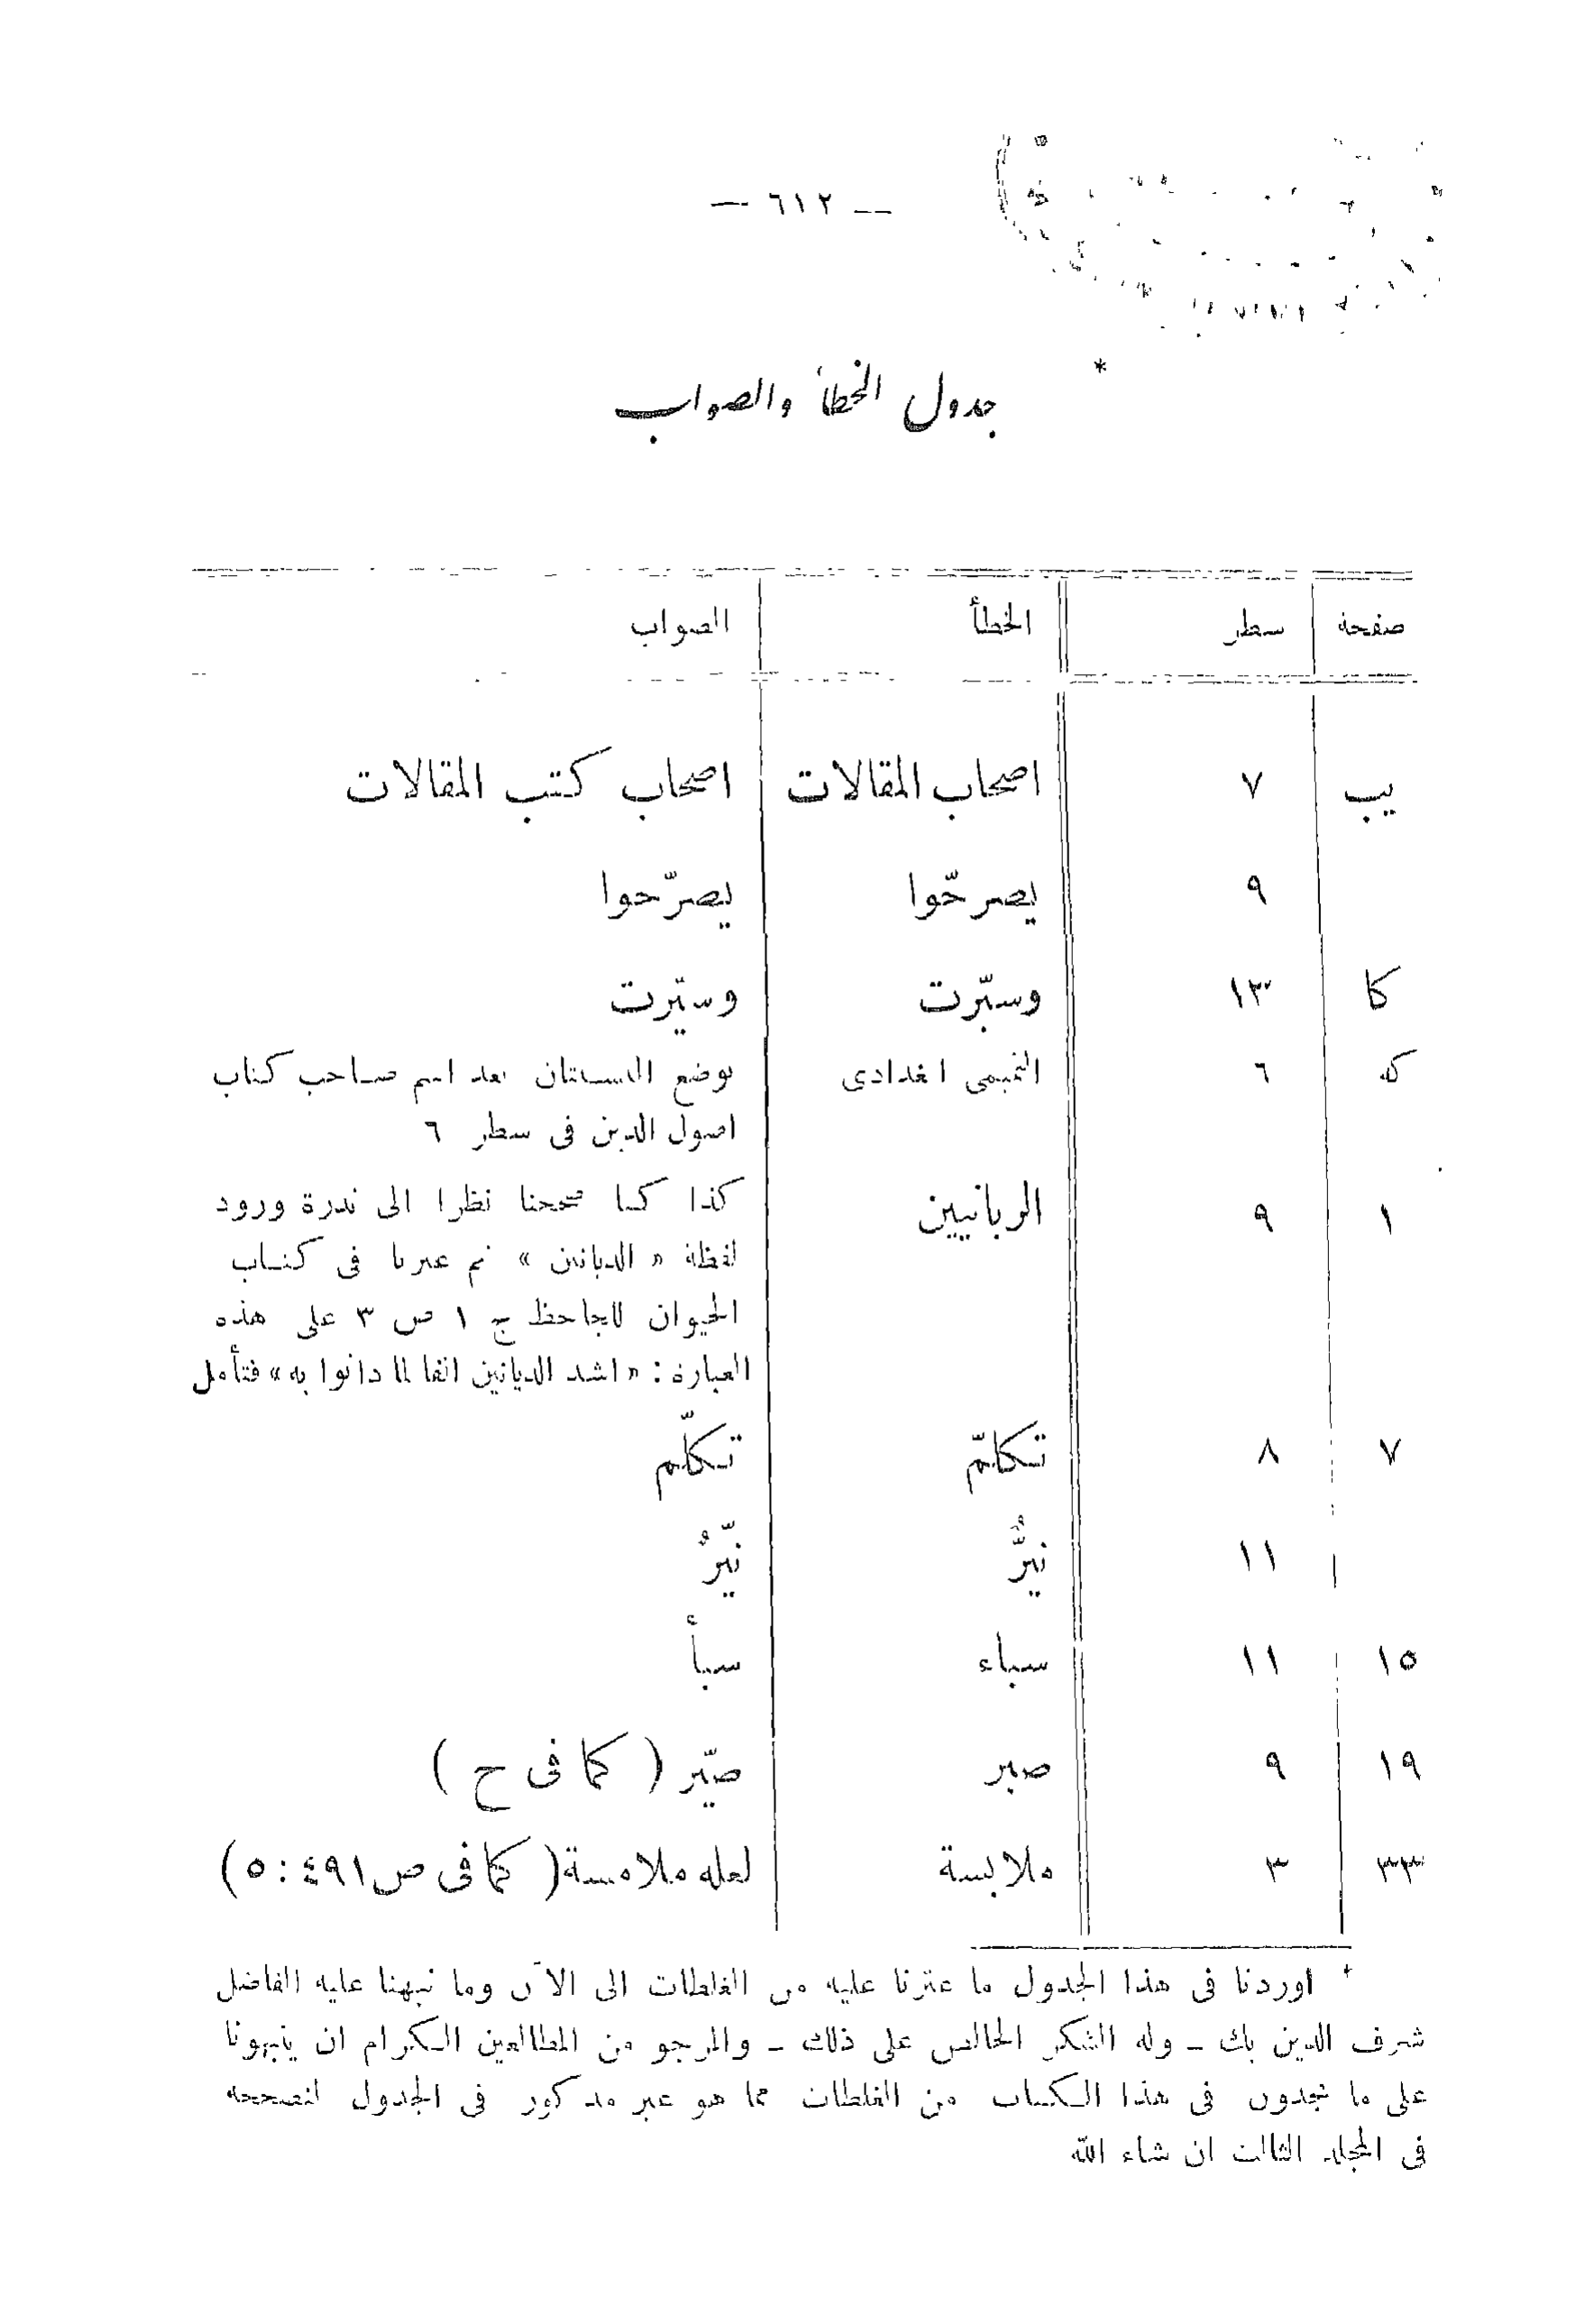 — ٦١٢ —
جدول الخطأ والصواب *
صفحة سطر الخطأ الصواب
يب ٧ اصحاب المقالات اصحاب كتب المقالات
٩ يصرحّوا يصرّحوا
كا ١٣ وسبّرت وسيّرت
كه ٦ التميمى البغدادى يوضع اللسـانان بعد اسم صـاحب كتاب
اصول الدين فى سطر ٦
١ ٩ الربانيين كذا كـنا صححنا نظرا الى ندرة ورود
لفظة « الديانين » ثم عثرنا فى كتـاب
الحيوان للجاحظ ج ١ ص ٣ على هذه
العبارة : « اشد الديانين انفا لما دانوا به » فتأمل
٧ ٨ تـكلمّ تـكلّم
١١ نيرٌّ نيّرٌ
١٥ ١١ سباء سبأ
١٩ ٩ صبر صيّر ( كما فى ح )
٣٣ ٣ ملابسة لعله ملامسة ( كما فى ص ٤٩١ : ٥ )
* اوردنا فى هذا الجدول ما عثرنا عليه من الغلطات الى الآن وما نبهنا عليه الفاضل
شرف الدين بك ـ وله الشكر الخالص على ذلك ـ والمرجو من المطالعين الـكرام ان ينبهونا
على ما يجدون فى هذا الـكتاب من الغلطات مما هو غير مذكور فى الجدول لنصححه
فى المجلد الثالث ان شاء الله